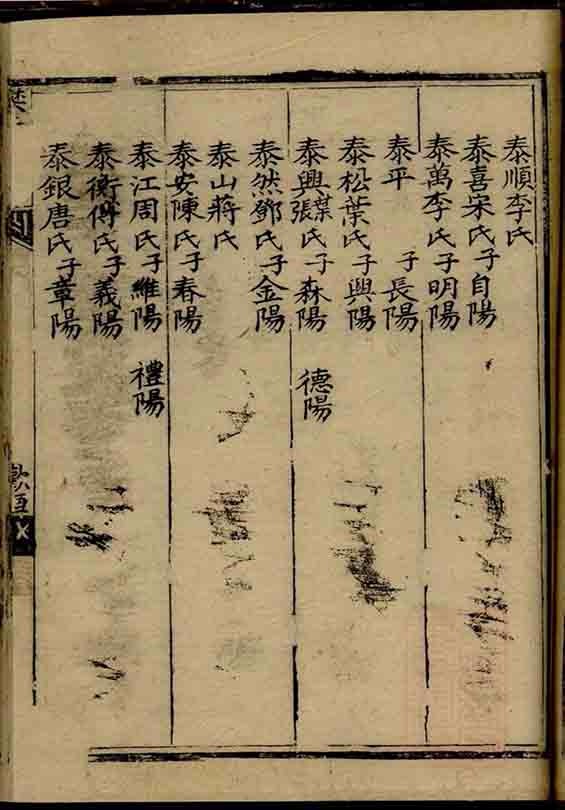 泰順李氏
泰喜宋氏子自陽
泰萬李氏子明陽
泰平　子長陽
泰松葉氏子興陽
泰興張葉氏子森陽　德陽
泰然鄧氏子金陽
泰山蔣氏
泰安陳氏子春陽
泰江周氏子維陽　禮陽
泰衡傅氏子義陽
泰銀唐氏子章陽